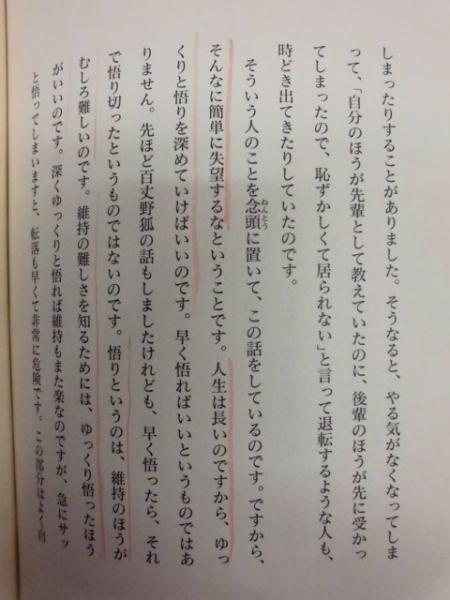 しまったりすることがありました。そうなると、やる気がなくなってしま
って、「自分のほうが先輩として教えていたのに、後輩のほうが先に受かっ
てしまったので、恥ずかしくて居られない」と言って退転するような人も、
時どき出てきたりしていたのです。
そういう人のことを念頭に置いて、この話をしているのです。ですから、
そんなに簡単に失望するなということです。人生は長いのですから、ゆっ
くりと悟りを深めていけばいいのです。早く悟ればいいというものではあ
りません。先ほど百丈野狐の話もしましたけれども、早く悟ったら、それ
で悟り切ったというものではないのです。悟りというのは、維持のほうが
むしろ難しいのです。維持の難しさを知るためには、ゆっくり悟ったほう
がいいのです。深くゆっくりと悟れば維持もまた楽なのですが、急にサッ
と悟ってしまいますと、転落も早くて非常に危険です。この部分はよく自